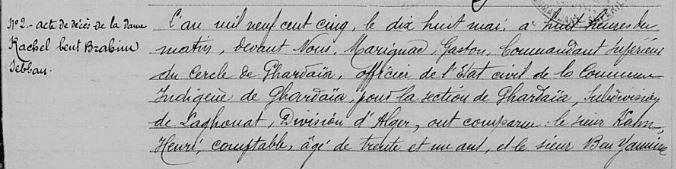 N° 2. - acte de décès de la dame
Rachel bent Brahim
Sebban.
L'an mil neuf cent cinq, le dix huit mai, à huit heures du
matin, devant Nous, Marignac Gaston, Commandant Supérieur
du Cercle de Ghardaïa, officier de l'Etat civil de la Commune
Indigène de Ghardaïa, pour la section de Ghardaïa, Subdivision
de Laghouat, Division d'Alger, ont comparu le sieur Kahn
Henri, comptable, âgé de trente et un ans, et le sieur Ben Yamine